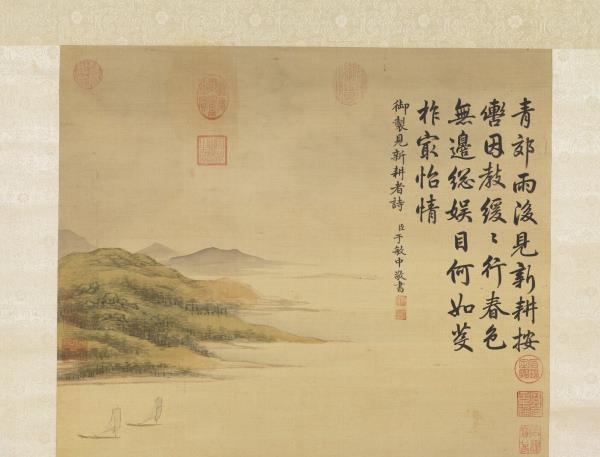 青郊雨後見新耕按
轡因教緩〻行春色
無邊総娛目何如芟
柞㝡怡情
御製見新耕者詩 臣于敏中敬書